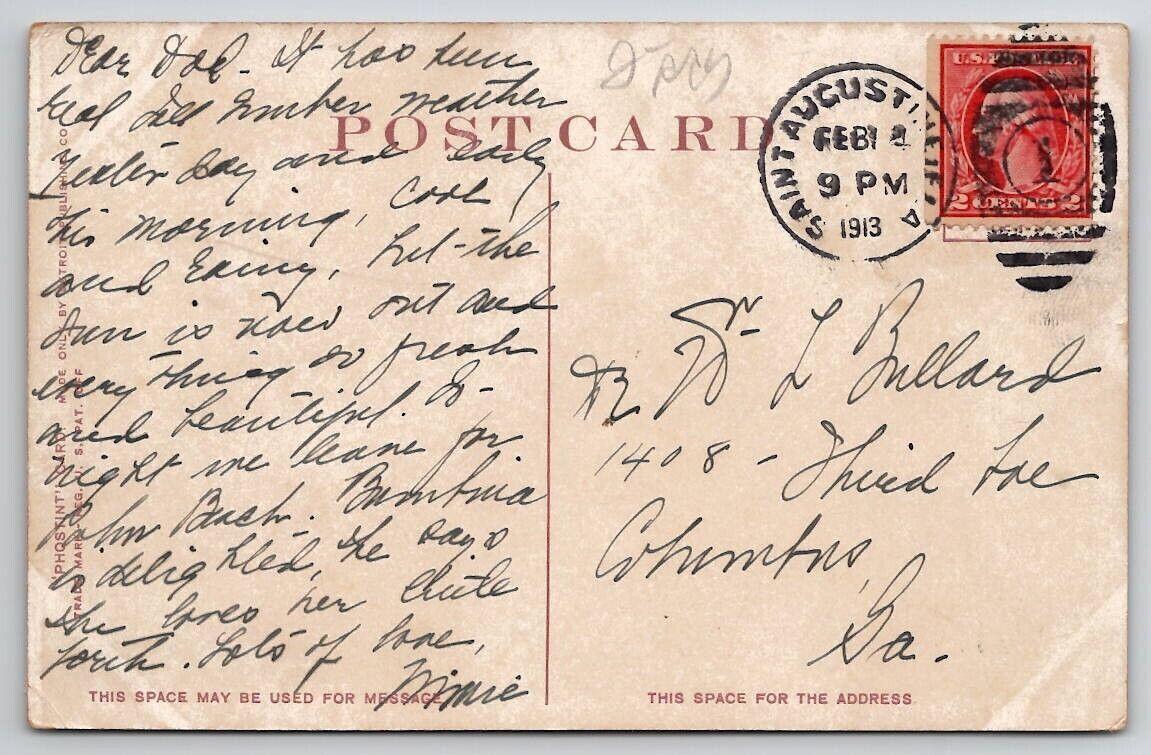 Dear Dad. It has been
real Sept ember weather
yester day and early
this morning, cool
and rainy, but the
sun is now out and
every thing so fresh
and beautiful. To-
night we leave for
Palm Beach.
is delighted, she says
she loves her
Lots of love,
Minnie
POST CARD
SAINT AUGUSTINE, FLA
FEB 1
9 PM
1913
U.S. POSTAGE
2 CENTS 2
Dr W L Bullard
1408 - Third Ave
Columbus,
Ga.
"PHOSTINT" CARD MADE ONLY BY DETROIT PUBLISHING CO.
TRADE MARK REG. U. S. PAT. OFF
THIS SPACE MAY BE USED FOR MESSAGE
THIS SPACE FOR THE ADDRESS